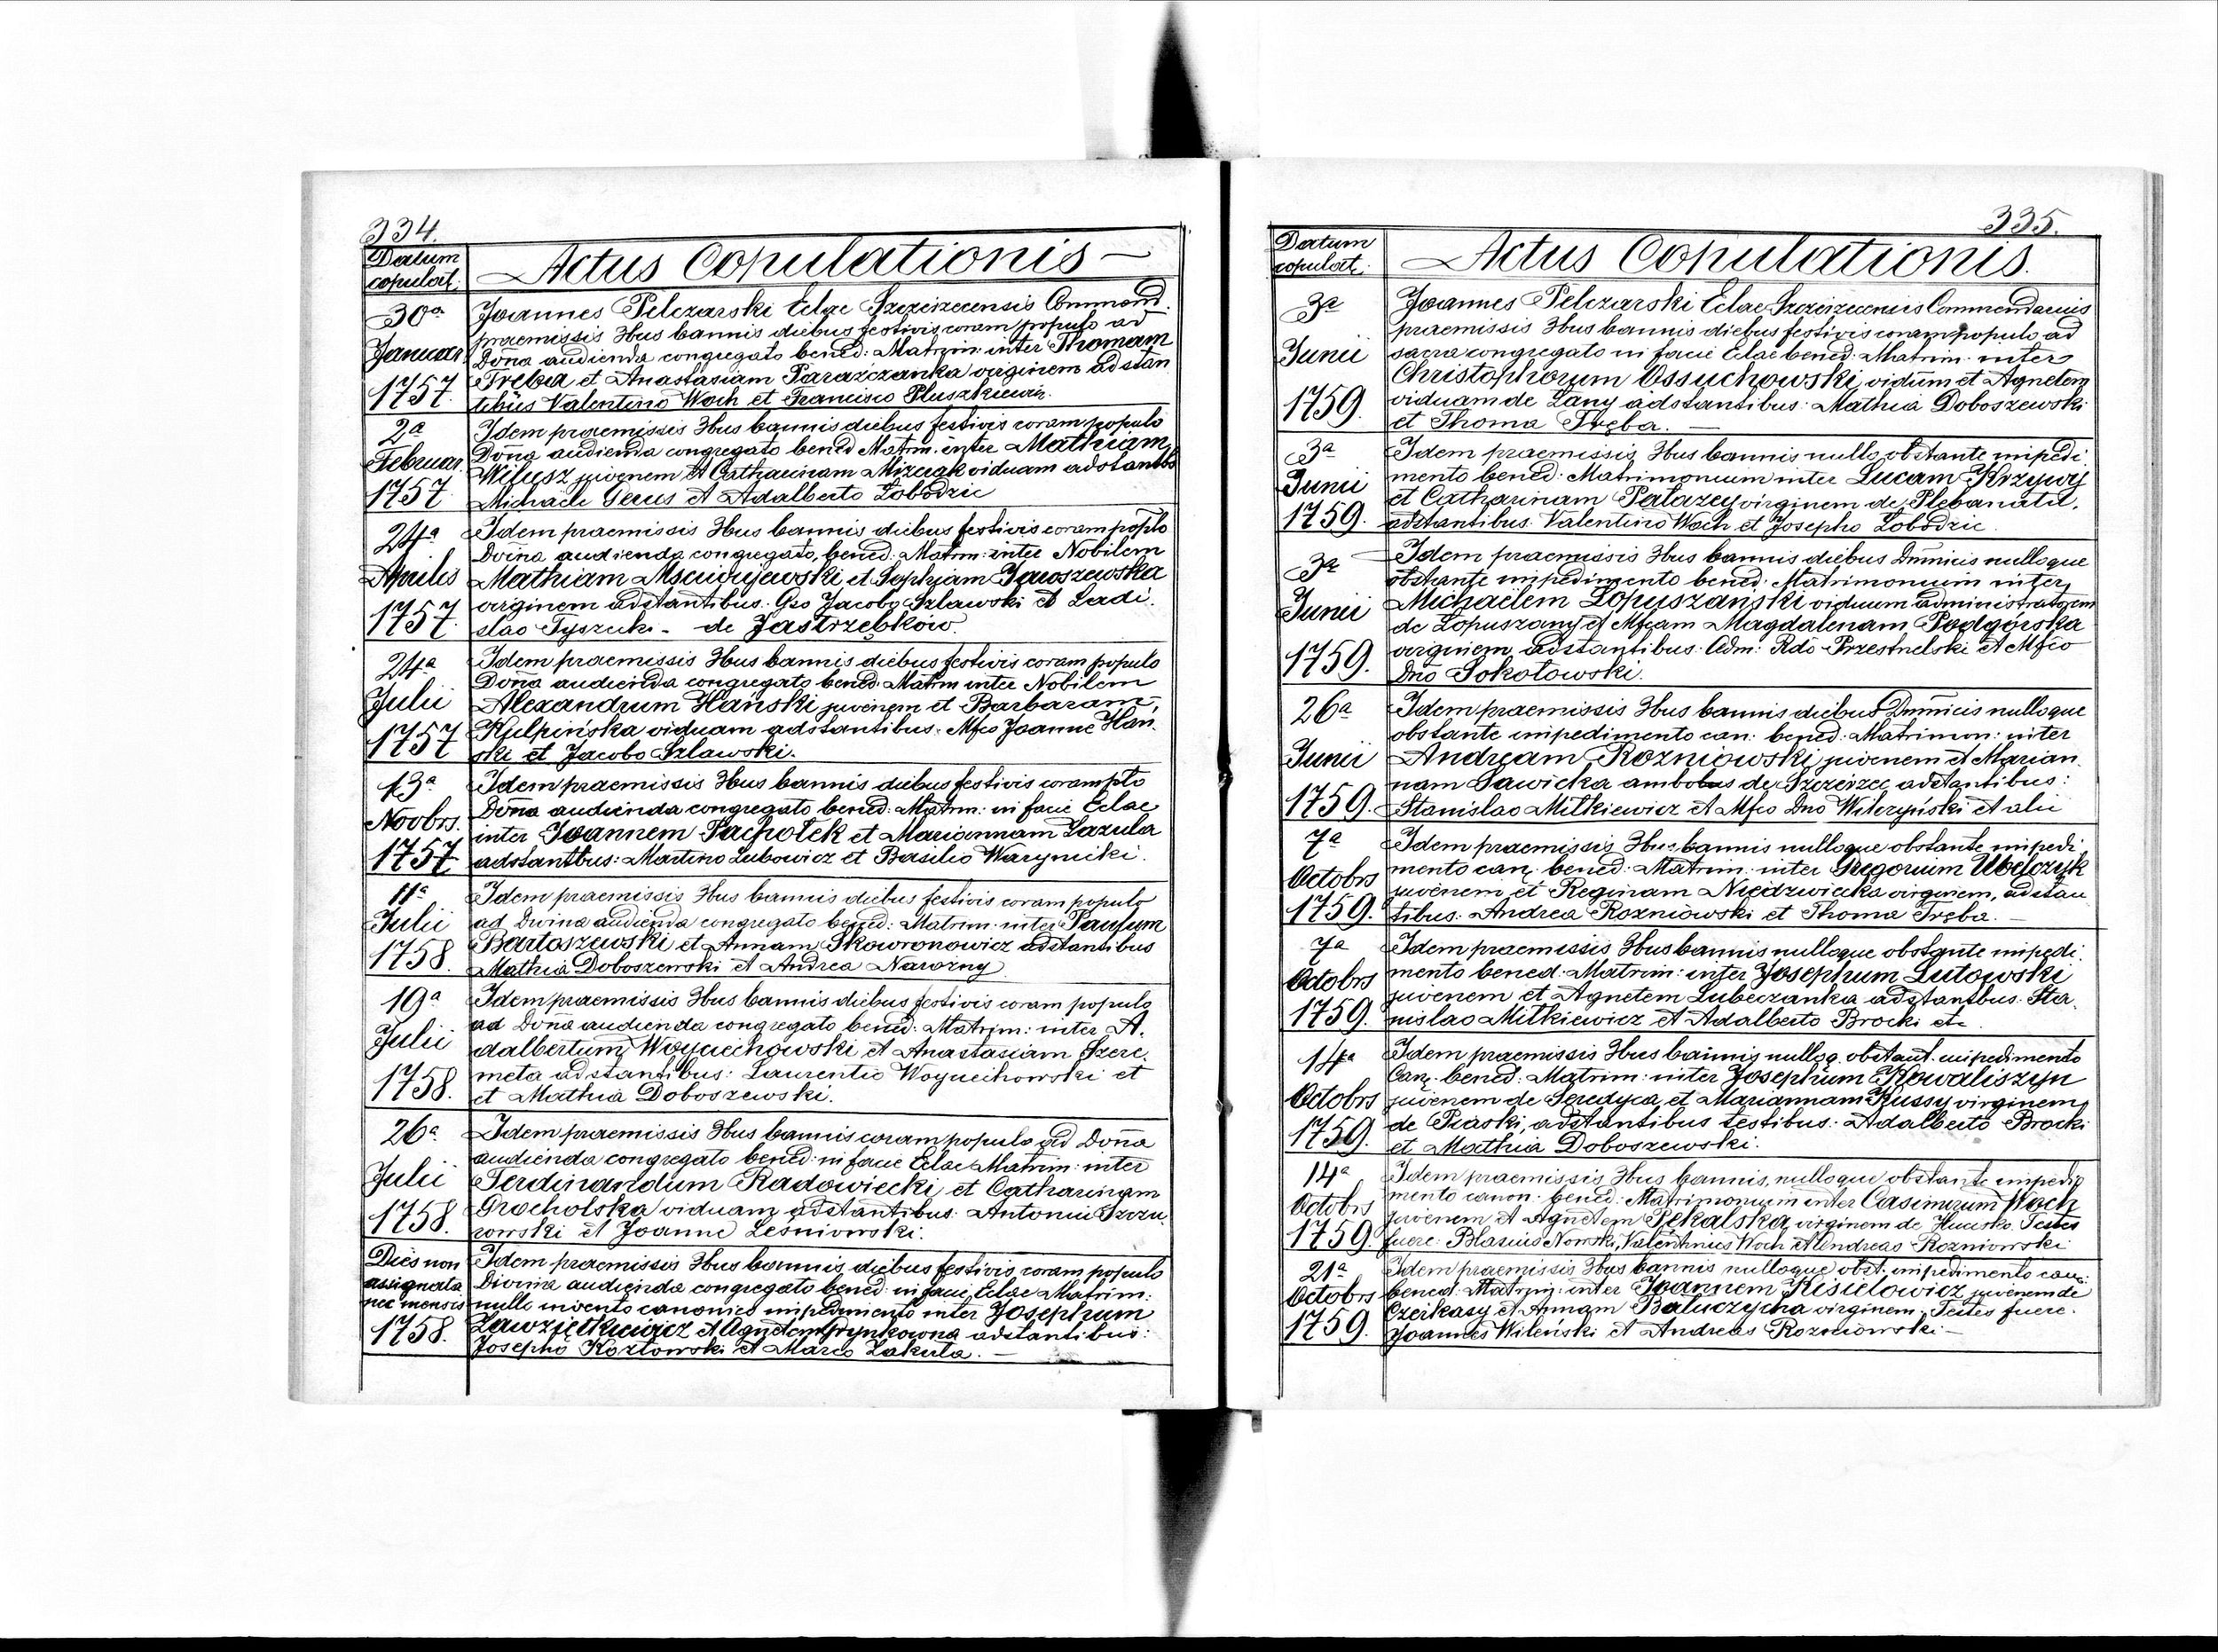 334.
Datum
copulat.
Actus Copulationis
30a
Januar.
1757.
Joannes Pelczarski Eclae Szczerzecensis Commend.
praemissis 3bus bannis diebus festivis coram populo ad
Dona audienda congregato bened: Matrim: inter Thomam
Tręba et Anastasiam Parazczanka virginem adstan
tibus Valentino Woch et Francisco Pluszkiewicz.
2a
Februar.
1757.
Idem praemissis 3bus bannis diebus festivis coram populo
Dona audienda congregato bened Matrim. inter Mathiam
Wilusz juvenem et Catharinam Mizciak viduam adstantbs
Michaele Gerus et Adalberto Łobodzic
24a
Aprilis
1757.
Idem praemissis 3bus bannis diebus festivis coram poplo
Doina audienda congregato, bened: Matrim: inter Nobilem
Mathiam Msciwujewski et Sophiam Jaroszewska
virginem adstantibus. Gso Jacobo Szlawski et Ladi.
slao Tyszucki - de Jastrzębkow.
24a
Julii
1757
Idem praemissis 3bus bannis diebus festivis coram populo
Dona audienda congregato bened: Matrim inter Nobilem
Alexandrum Hański juvenem et Barbaram,
Kjelpińska viduam adstantibus. Mfco Joanne Hań.
ski et Jacobo Szlawski.
13a
Novbrs.
1757
Idem praemissis 3bus bannis diebus festivis coram pto
Dona audienda congregato bened: Matrim: in facie Eclae
inter Joannem Pachołek et Mariannam Zazula
adstantbus: Martino Lubowicz et Basilio Warynicki.
11a
Julii
1758.
Idem praemissis 3bus bannis diebus festivis coram populo
ad Divina audienda congregato bened: Matrim: inter Paulum
Bartoszewski et Annam Skowronowicz adstantibus
Mathia Doboszewski et Andrea Narozny
19a
Julii
1758.
Idem praemissis 3bus bannis diebus festivis coram populo
ad Dona audienda congregato bened: Matrim: inter A.
dalbertum Woyciechowski et Anastasiam Szere.
meta adstantibus: Laurentio Woyciechowski et
et Mathia Doboszewski.
26a
Julii
1758.
Idem praemissis 3bus bannis coram populo ad Dona
audienda congregato bened: in facie Eclae Matrim: inter
Ferdinandum Radowiecki et Catharinam
Grocholska viduam adstantibus: Antonio Szczu
rowski et Joanne Leśniowski.
Dies non
assignata
nec mensis
1758.
Idem praemissis 3bus bannis, diebus festivis, coram populo
Divina audienda congregato bened: in facie Eclae Matrim:
nullo invento canonico impedimento inter Josephum
Zawziętkiewicz et Agnetem Hrynkowna adstantibus:
Josepho Kozłowski et Marco Zakuta.
335.
Datum
copulat.
Actus Copulationis.
3a
Junii
1759.
Joannes Pelczarski Eclae Szczerzecensis Commendarius
praemissis 3bus bannis diebus festivis coram populo ad
sacra congregato in facie Eclae bened: Matrim: inter
Christophorum Ossuchowski, viduum et Agnetem
viduam de Łany adstantibus: Mathia Doboszewski
et Thoma Tręba.
3a
Junii
1759.
Idem praemissis 3bus bannis nullo obstante impedi
mento bened: Matrimonium inter Lucam Krzywy
et Catharinam Palazey virginem de Plebanatu,
adstantibus. Valentino Woch et Josepho Łobodzic.
3a
Junii
1759.
Idem praemissis 3bus bannis diebus Dmnicis nulloque
obstante impedimento bened: Matrimonium inter
Michaelem Łopuszański viduum administratorem
de Łopuszany et Mfcam Magdalenam Podgórska
virginem, adstantibus. Adm: Rdo Przestrzelski et Mfco
Dno Sokołowski.
26a
Junii
1759.
Idem praemissis 3bus bannis diebus Dmnicis nulloque
obstante impedimento can: bened: Matrimon: inter
Andream Rozniowski juvenem et Marian
nam Sawicka ambobus de Szczerzec adstantibus:
Stanislao Mitkiewicz et Mfco Dno Wilczyński et alii
7a
Octobrs
1759.
Idem praemissis 3bus bannis nulloque obstante impedi
mento can. bened: Matrim: inter Gregorium Wojczyk
juvenem et Reginam Niedzwiecka virginem, adstan
tibus: Andrea Rozniowski et Thoma Tręba.
7a
Octobrs
1759.
Idem praemissis 3bus bannis nulloque obstante impedi.
mento bened: Matrim: inter Josephum Lutowski
juvenem et Agnetem Lubeczanka adstantbus: Sta.
nislao Mitkiewicz et Adalberto Brocki etc.
14a
Octobrs
1759.
Idem praemissis 3bus bannis nulloq. obstant. impedimento
Can. bened: Matrim: inter Josephum Kowaliszyn
juvenem de Seredyca, et Mariannam Kussy virginem,
de Piaski, adstantibus testibus: Adalberto Brocki
et Mathia Doboszewski.
14a
Octobrs
1759.
Idem praemissis 3bus bannis, nulloque obstante impedi
mento canon: bened: Matrimonium inter Casimirum Woch
juvenem et Agnetem Pękalska, virginem de Hucisko. Testes
fuere: Blasius Nowski, Valentinus Woch et Andreas Rozniowski
21a
Octobrs
1759.
Idem praemissis 3bus bannis nulloque obst. impedimento can:
bened: Matrim: inter Joannem Kisielowicz juvenem de
Czerkasy et Annam Baluczycha virginem. Testes fuere.
Joannes Wileński et Andreas Rozniowski